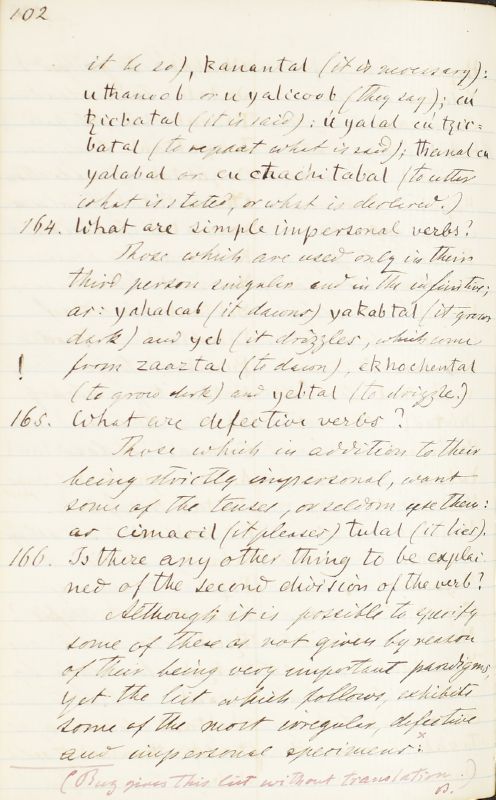 102
it be so), kanantal (it is necessary):
u thanoob or u yalicoob (they say); cú
tzicbatal (it is said): ú yalal cú tzic=
batal (to repeat what is said); thanal cu
yalabal or cu chachitabal (to utter
what is stated, or what is declared.)
164. What are simple impersonal verbs?
Those which are used only in their
third person singular and in the infinitive;
as: yahalcab (it dawns) yakabtal (it grows
dark) and yeb (it drizzles, which come
! from zaaztal (to dawn), ekhochental
(to grow dark) and yebtal (to drizzle.)
165. What are defective verbs?
Those which in addition to their
being strictly impersonal, want
some of the tenses, or seldom use them:
as cimacil (it pleases) tulal (it lies).
166. Is there any other thing to be explai
ned of the second division of the verb?
Although it is possible to specify
some of these as not given by reason
of their being very important paradigms,
yet the list which follows, exhibits
some of the most irregular, defective
and impersonal specimens: x
(Buz gives this list without translation.)
B.